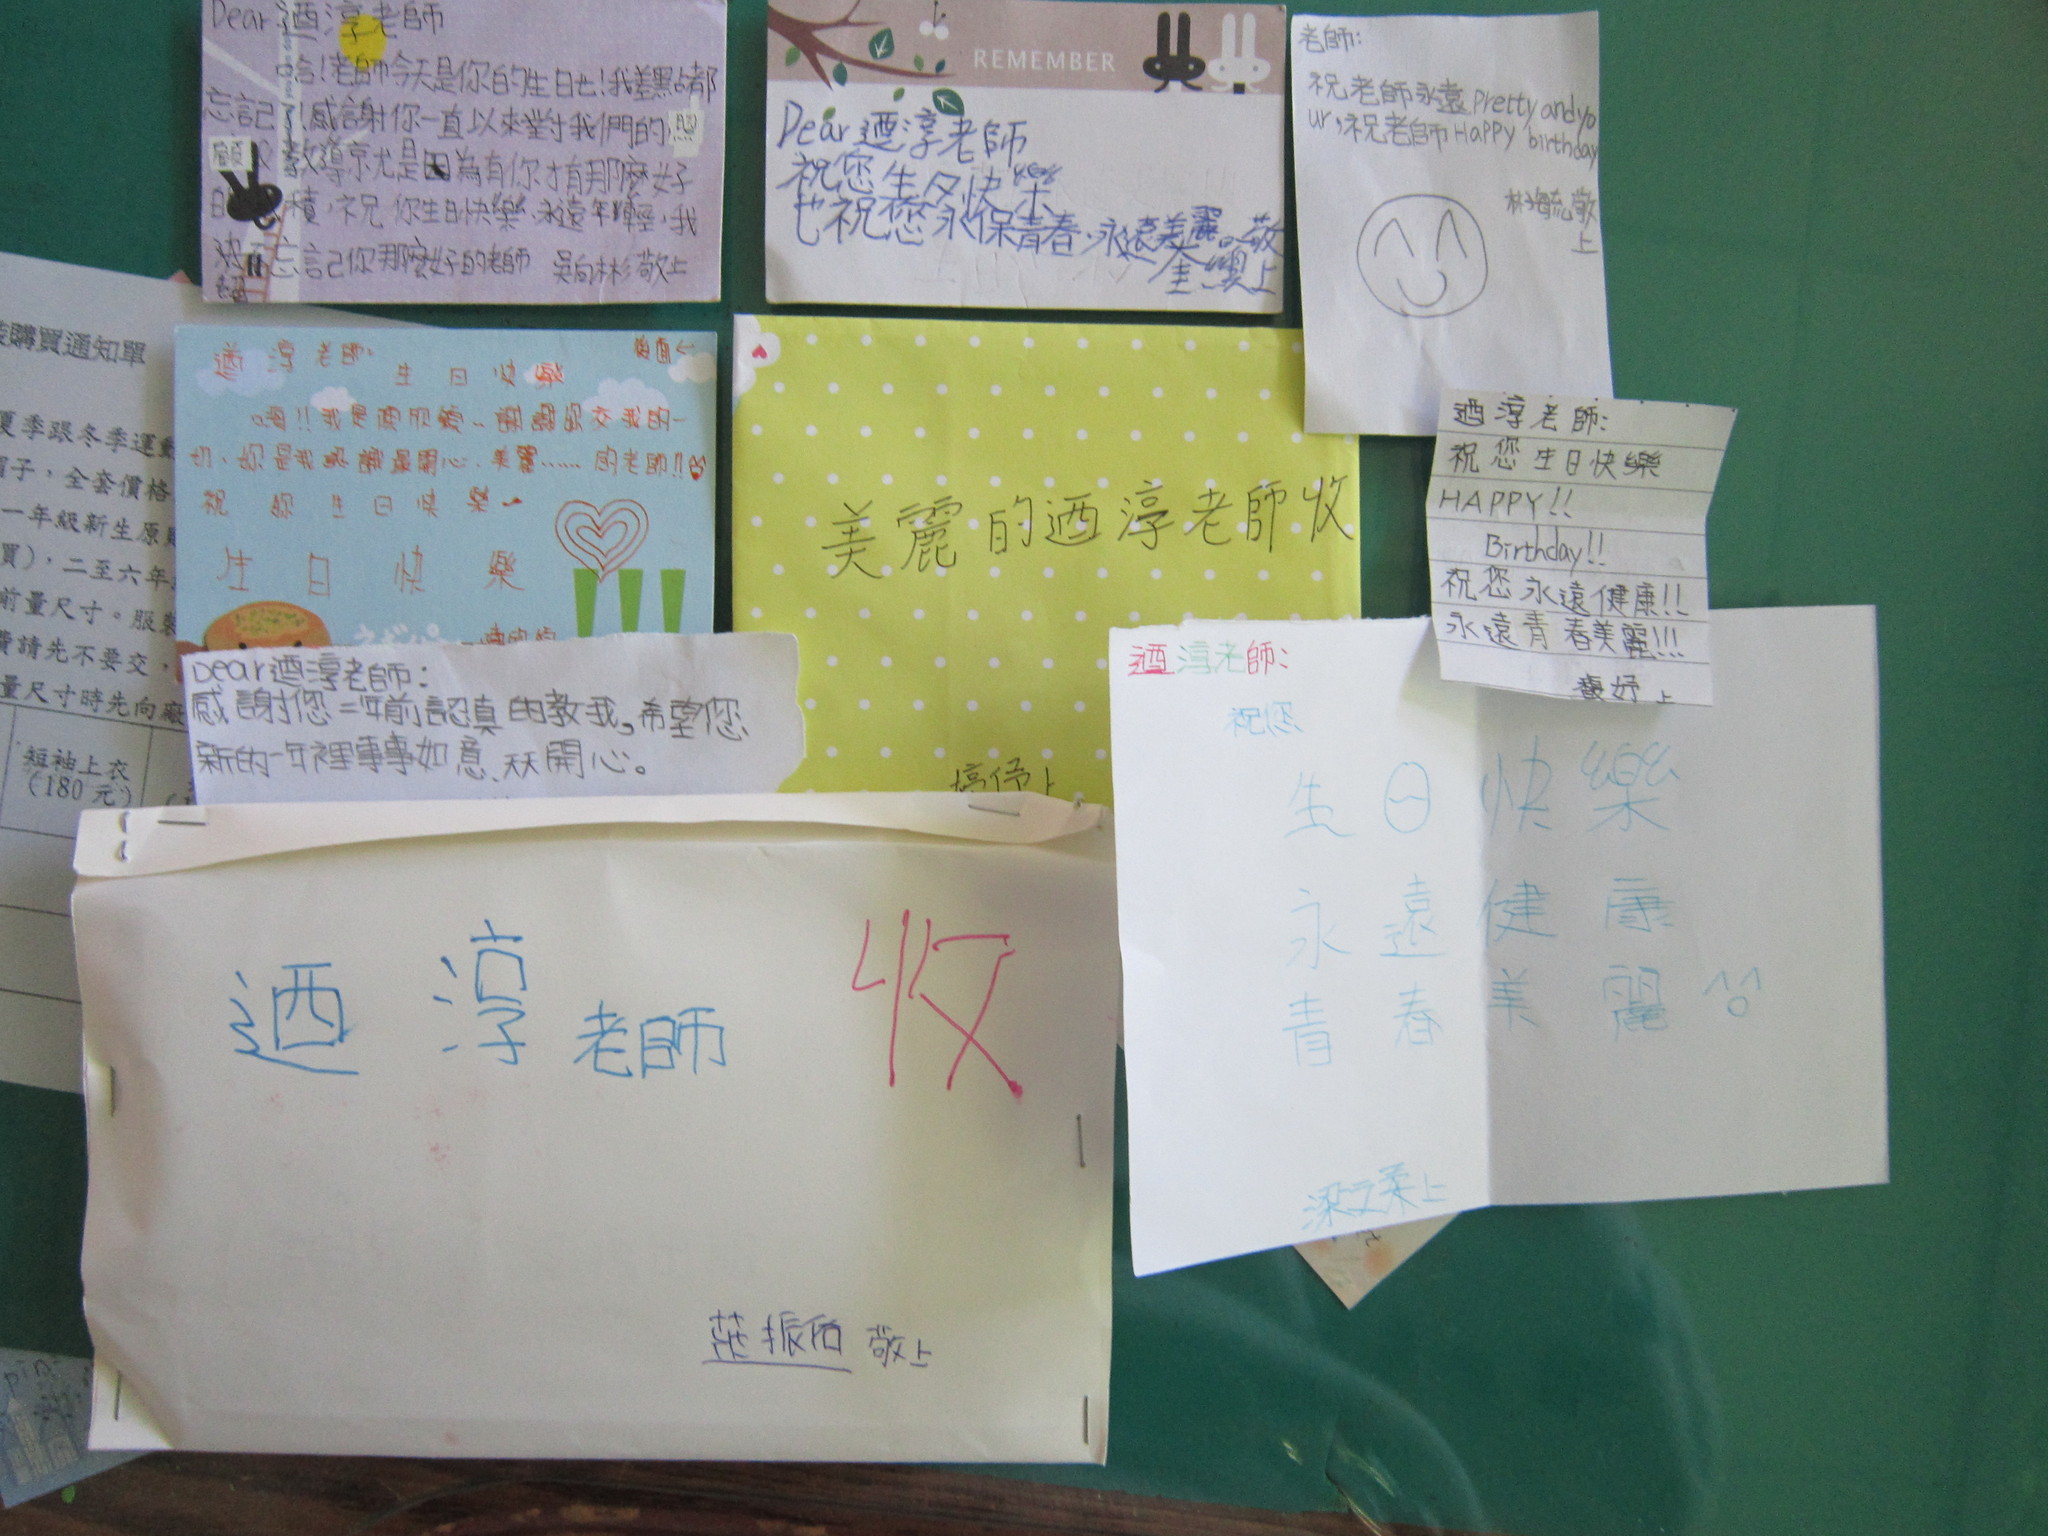 Dear 迺淳老師
哈!老師今天是你的生日也!我差點都
忘記 感謝你一直以來對我們的照
顧 教導尤是因為有你才有那麼好
積,祝你生日快樂,永遠年輕,我
忘記你那麼好的老師 敬上
REMEMBER
Dear 迺淳老師
祝您生日快樂
也祝您永保青春、永遠美麗。敬
上
老師:
祝老師永遠 Pretty and yo
ur,祝老師 Happy birthday
敬
上
購買通知單
夏季跟冬季運動
帽子,全套價格
一年級新生原則
買),二至六年
前量尺寸。服裝
費請先不要交,
量尺寸時先向廠
短袖上衣
(180元)
迺淳老師:
後面←
生日快樂
嗨!!我是 謝謝妳交我的一
切,妳是我認識最開心、美麗……的老師!!
祝妳生日快樂~
生日快樂
美麗的迺淳老師收
上
迺淳老師:
祝您生日快樂
HAPPY!!
Birthday!!
祝您永遠健康!!
永遠青春美麗!!!
馥妤上
Dear 迺淳老師:
感謝您二年前認真的教我。希望您
新的一年裡事事如意、天天開心。
迺淳老師:
祝您
生日快樂
永遠健康
青春美麗 ^o^
梁文柔上
迺淳老師 收
敬上